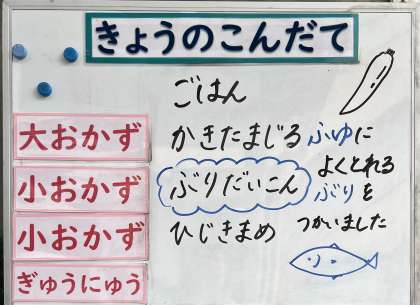 きょうのこんだて
ごはん
大おかず かきたまじる
小おかず ぶりだいこん
小おかず ひじきまめ
ぎゅうにゅう
ふゆに
よくとれる
ぶりを
つかいました